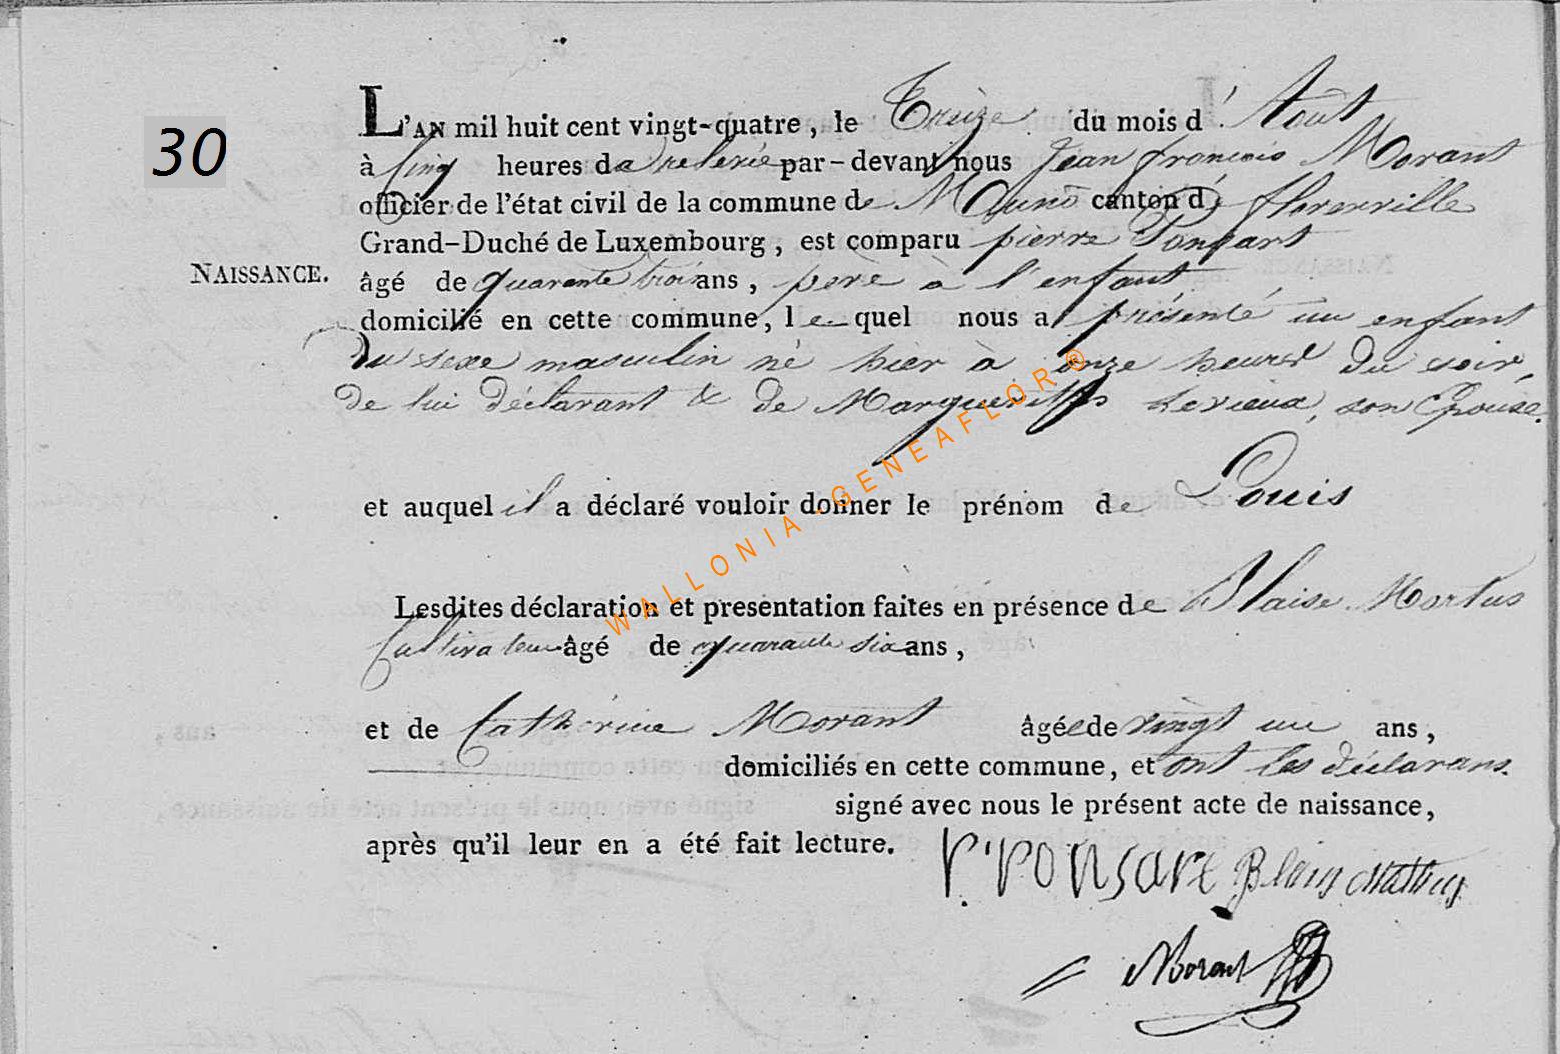 30
L'AN mil huit cent vingt-quatre, le Treize du mois d'Août
à Cinq heures de relevée par-devant nous Jean françois Morant
officier de l'état civil de la commune de Muno canton de florenville
Grand-Duché de Luxembourg, est comparu pierre Ponsart
NAISSANCE.
âgé de quarante trois ans, père à l'enfant
domicilié en cette commune, lequel nous a présenté un enfant
du sexe masculin né hier à onze heures du soir,
de lui déclarant & de Margueritte Levieux, son Epouse.
et auquel il a déclaré vouloir donner le prénom de Louis
Lesdites déclaration et presentation faites en présence de Blaise
Cultivateur âgé de quarante six ans,
et de Catherine Morant âgée de vingt un ans,
domiciliés en cette commune, et ont les déclarans.
signé avec nous le présent acte de naissance,
après qu'il leur en a été fait lecture.
P. ponsart
Morant
WALLONIA-GENEAFLOR®